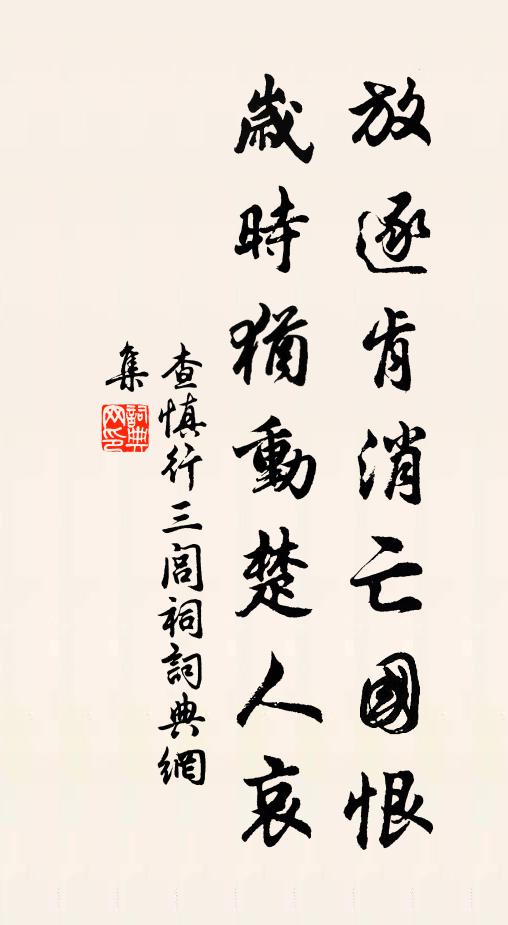 放逐肯消亡國恨
歲時猶動楚人哀
查慎行三閭祠詞典網
集
詞典網印